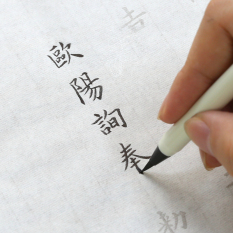 歐陽詢奉